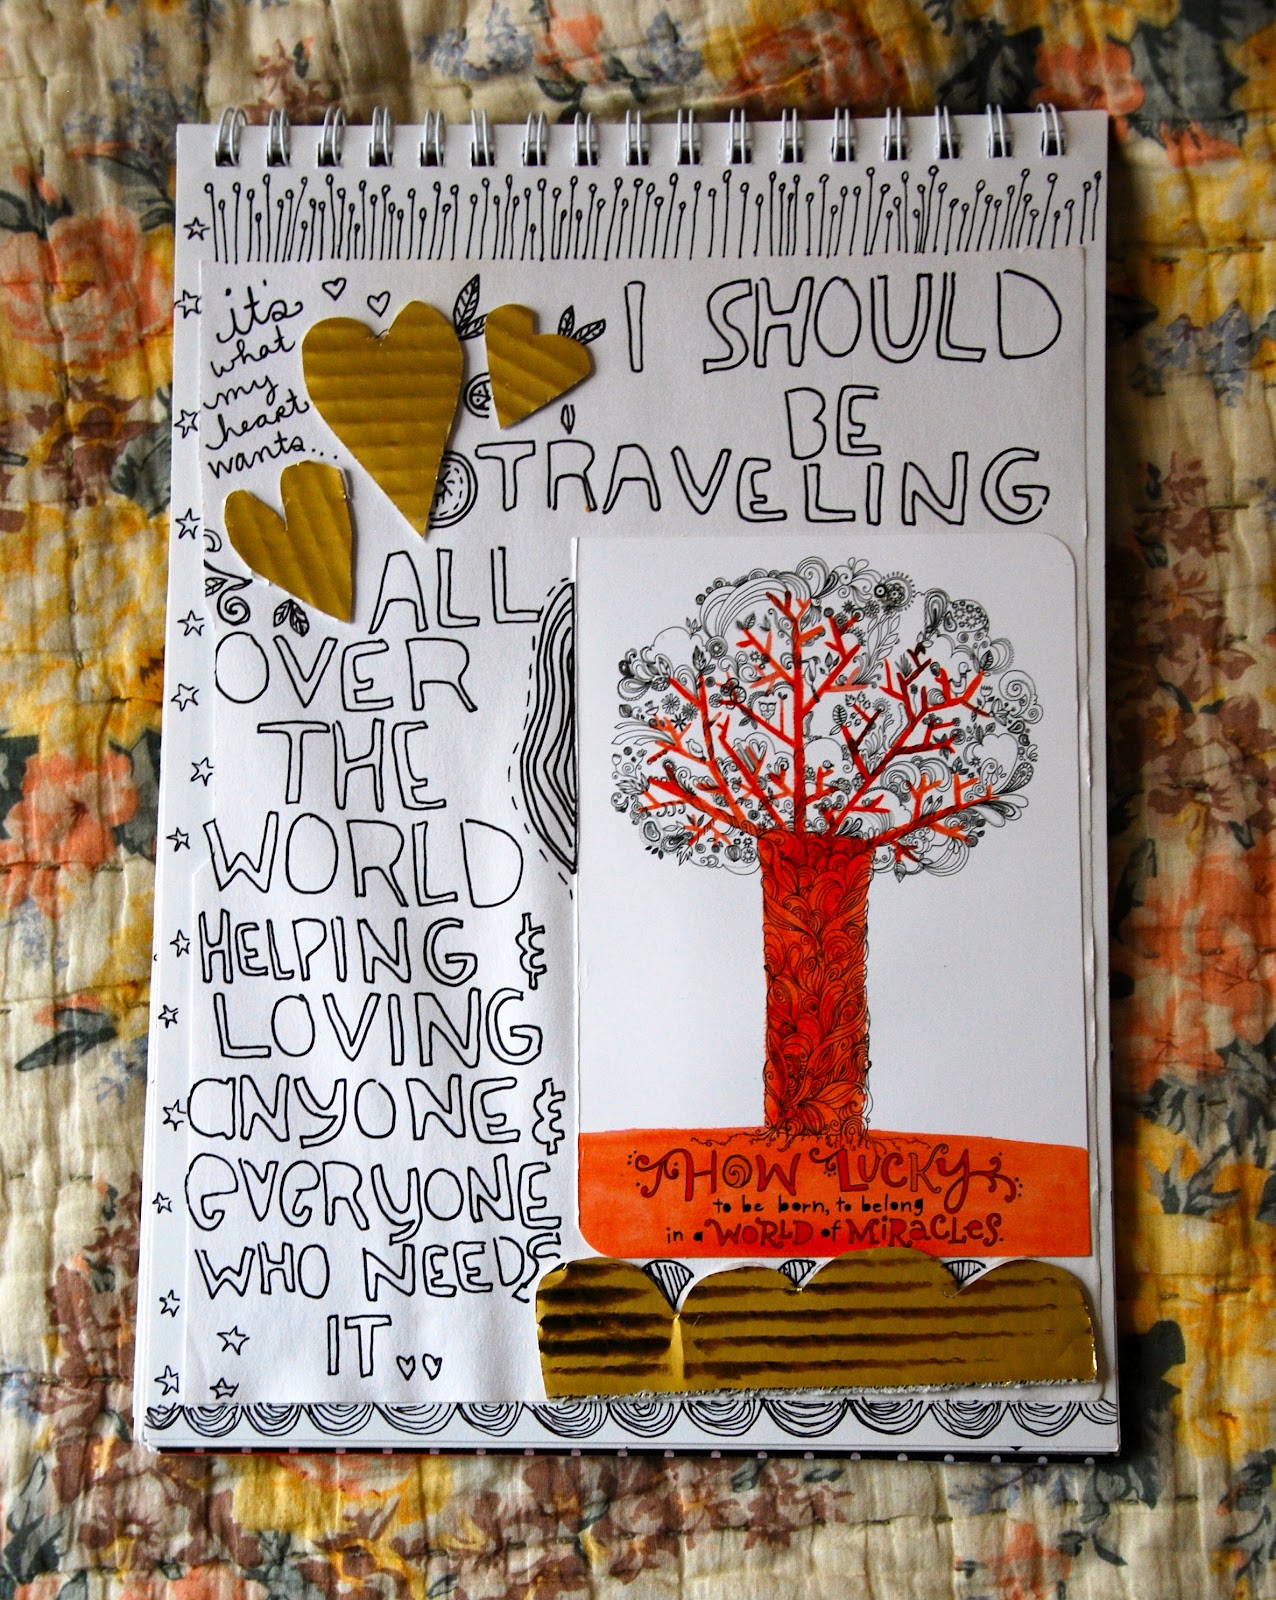 it's
what
my
heart
wants...
I SHOULD
BE
TRAVELING
ALL
OVER
THE
WORLD
HELPING &
LOVING
anyONE &
everyONE
WHO NEEDS
IT.
HOW LUCKY
to be born, to belong
in a WORLD of MIRACLES.